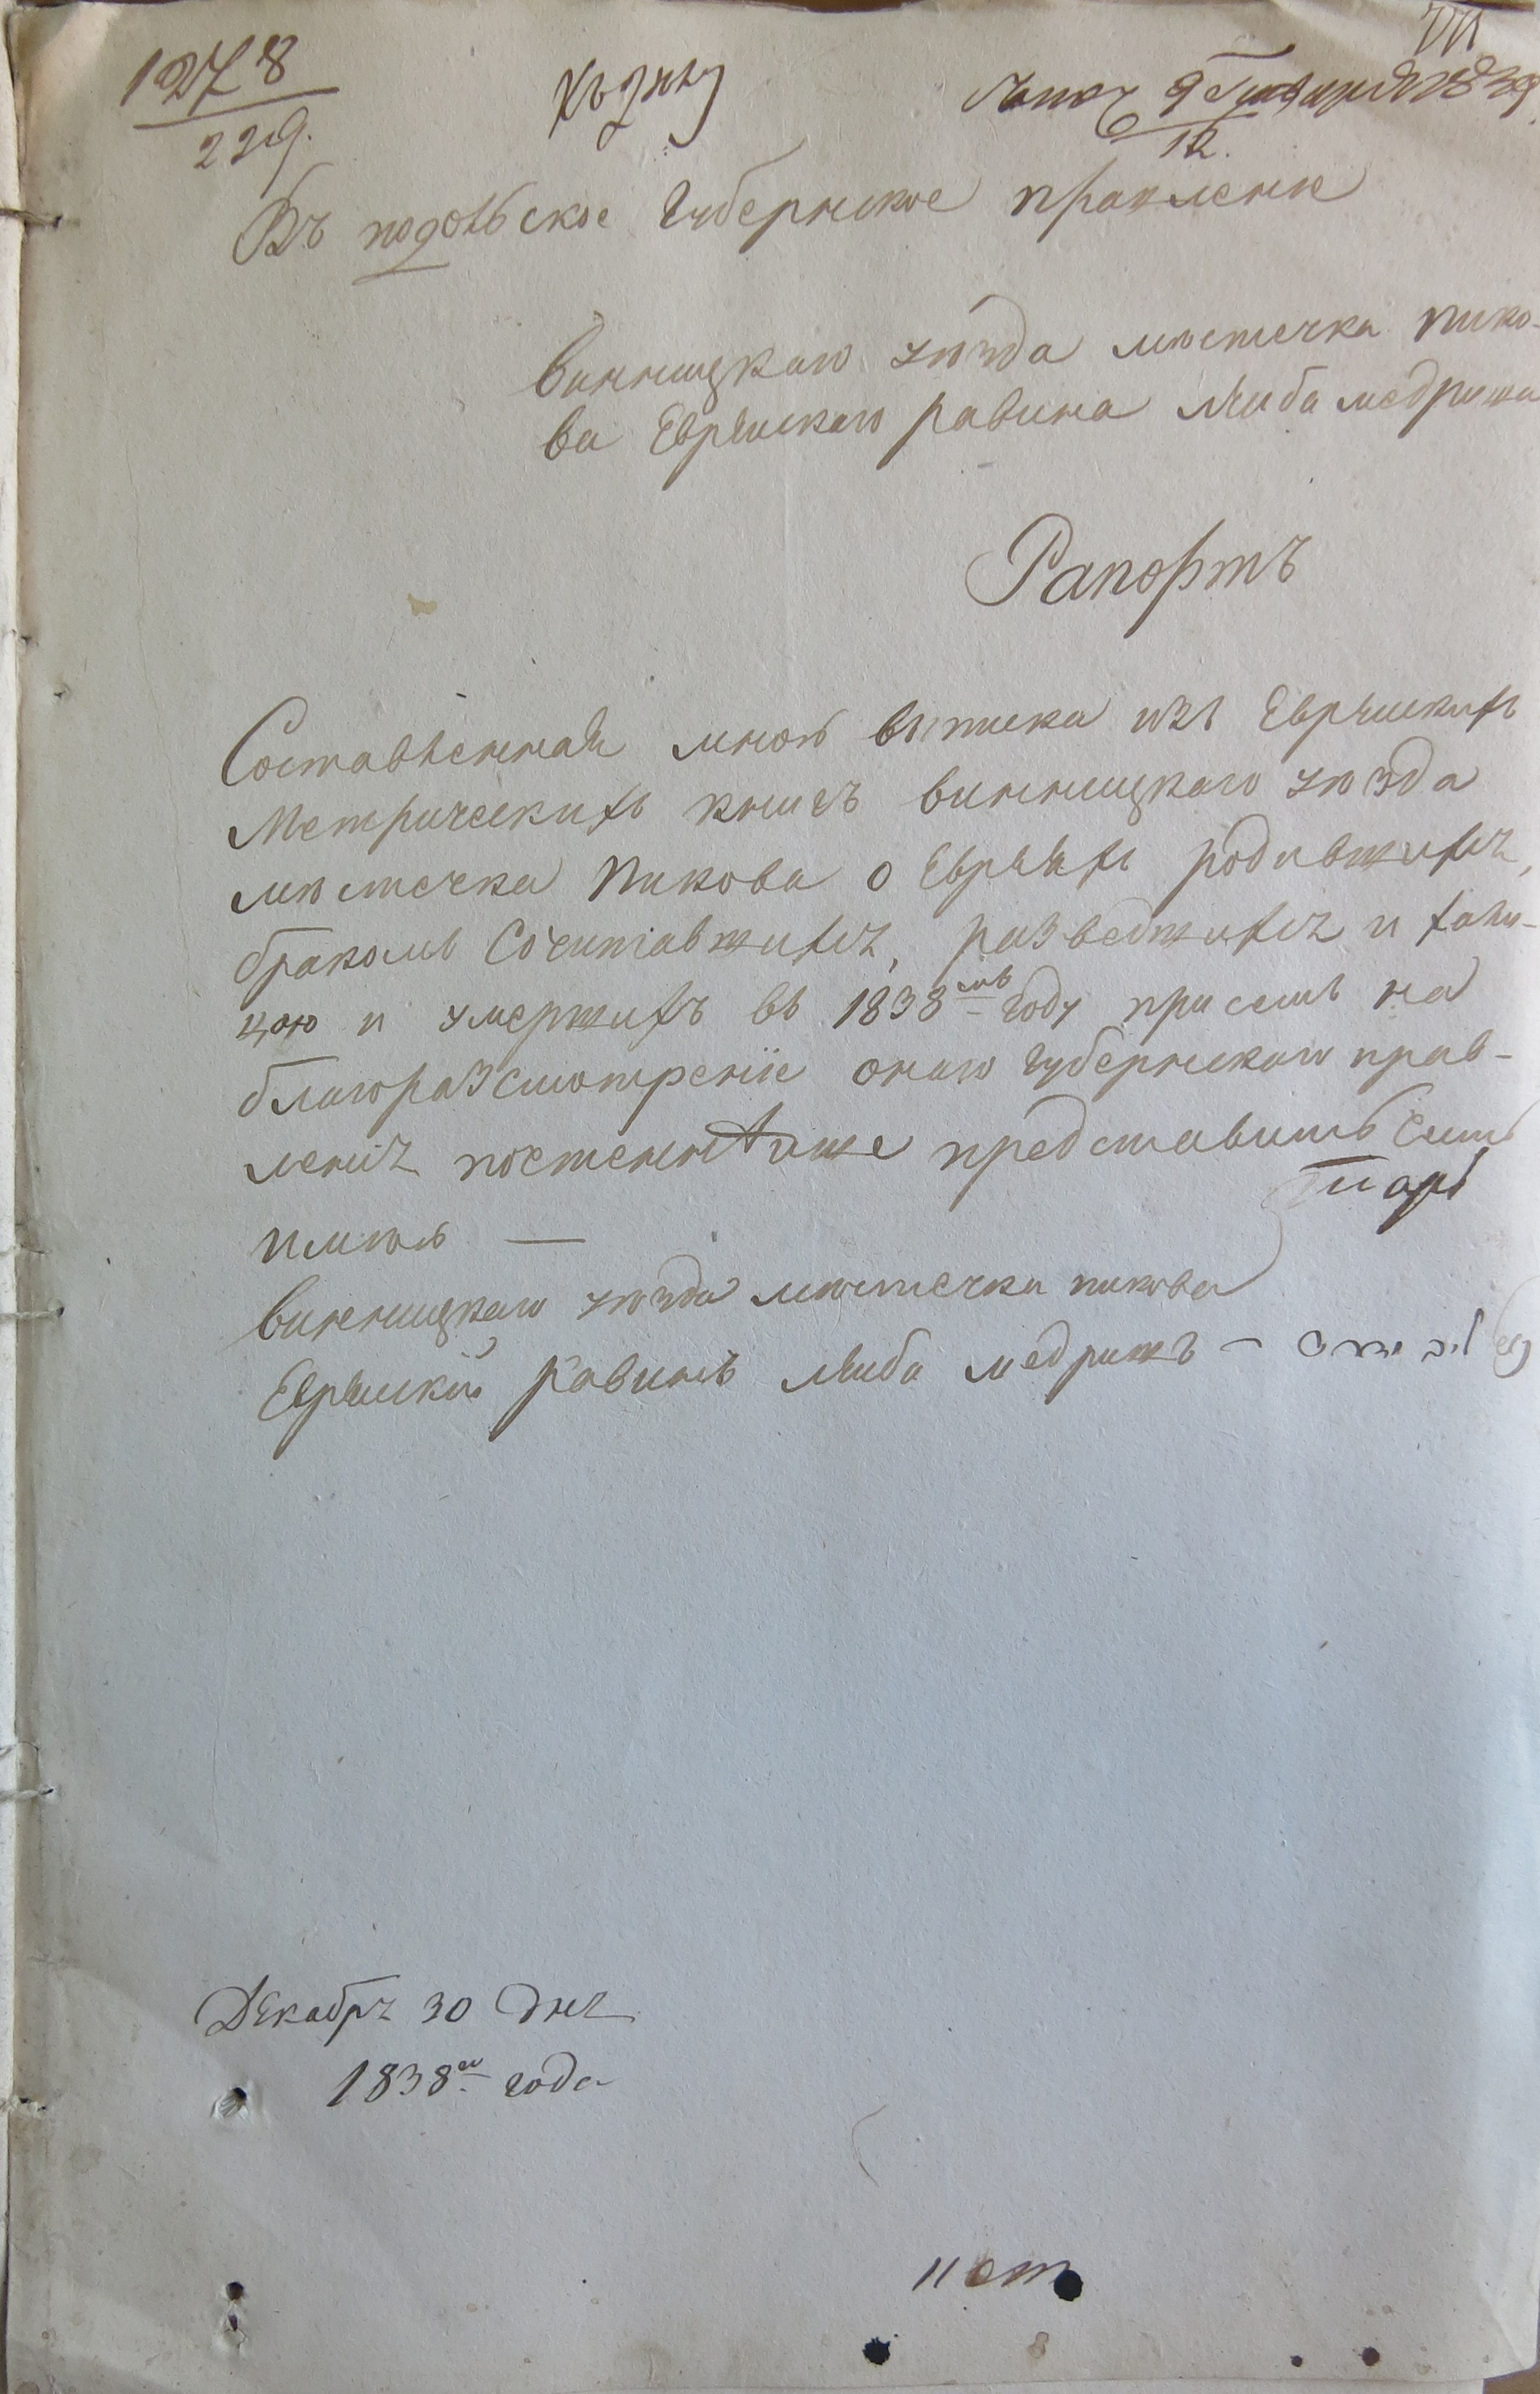 1278
229.
9 Генваря 1839
12.
Въ подольское Губернское правление
винницкаго уѣзда мѣстечка пико-
ва Еврейскаго равина Лейба медриша
Рапортъ
Составленная мною выписка изъ Еврейскихъ
Метрическихъ книгъ винницкаго уѣзда
мѣстечка Пикова о Евреяхъ родившихся,
бракомъ Сочитавшихся, разведшихся и
и умершихъ въ 1838мъ году при семъ на
благоразсмотреніе онаго Губернскаго прав-
ленія представить
винницкаго уѣзда мѣстечка пикова
Еврейскій равинъ Лейба медришъ —
Декабря 30 дня
1838го года